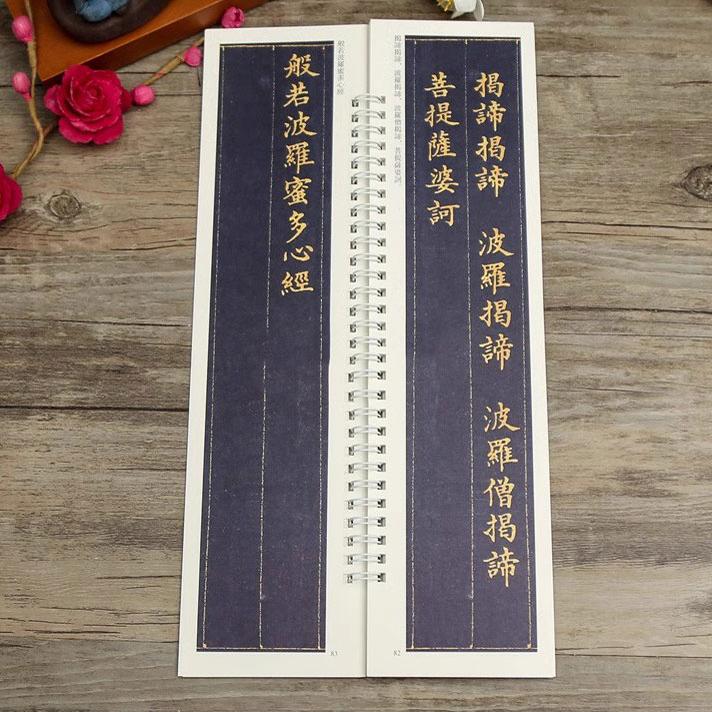 揭諦揭諦　波羅揭諦　波羅僧揭諦
菩提薩婆訶
揭諦揭諦，波羅揭諦，波羅僧揭諦，菩提薩婆訶。
82
般若波羅蜜多心經
般若波羅蜜多心經
83